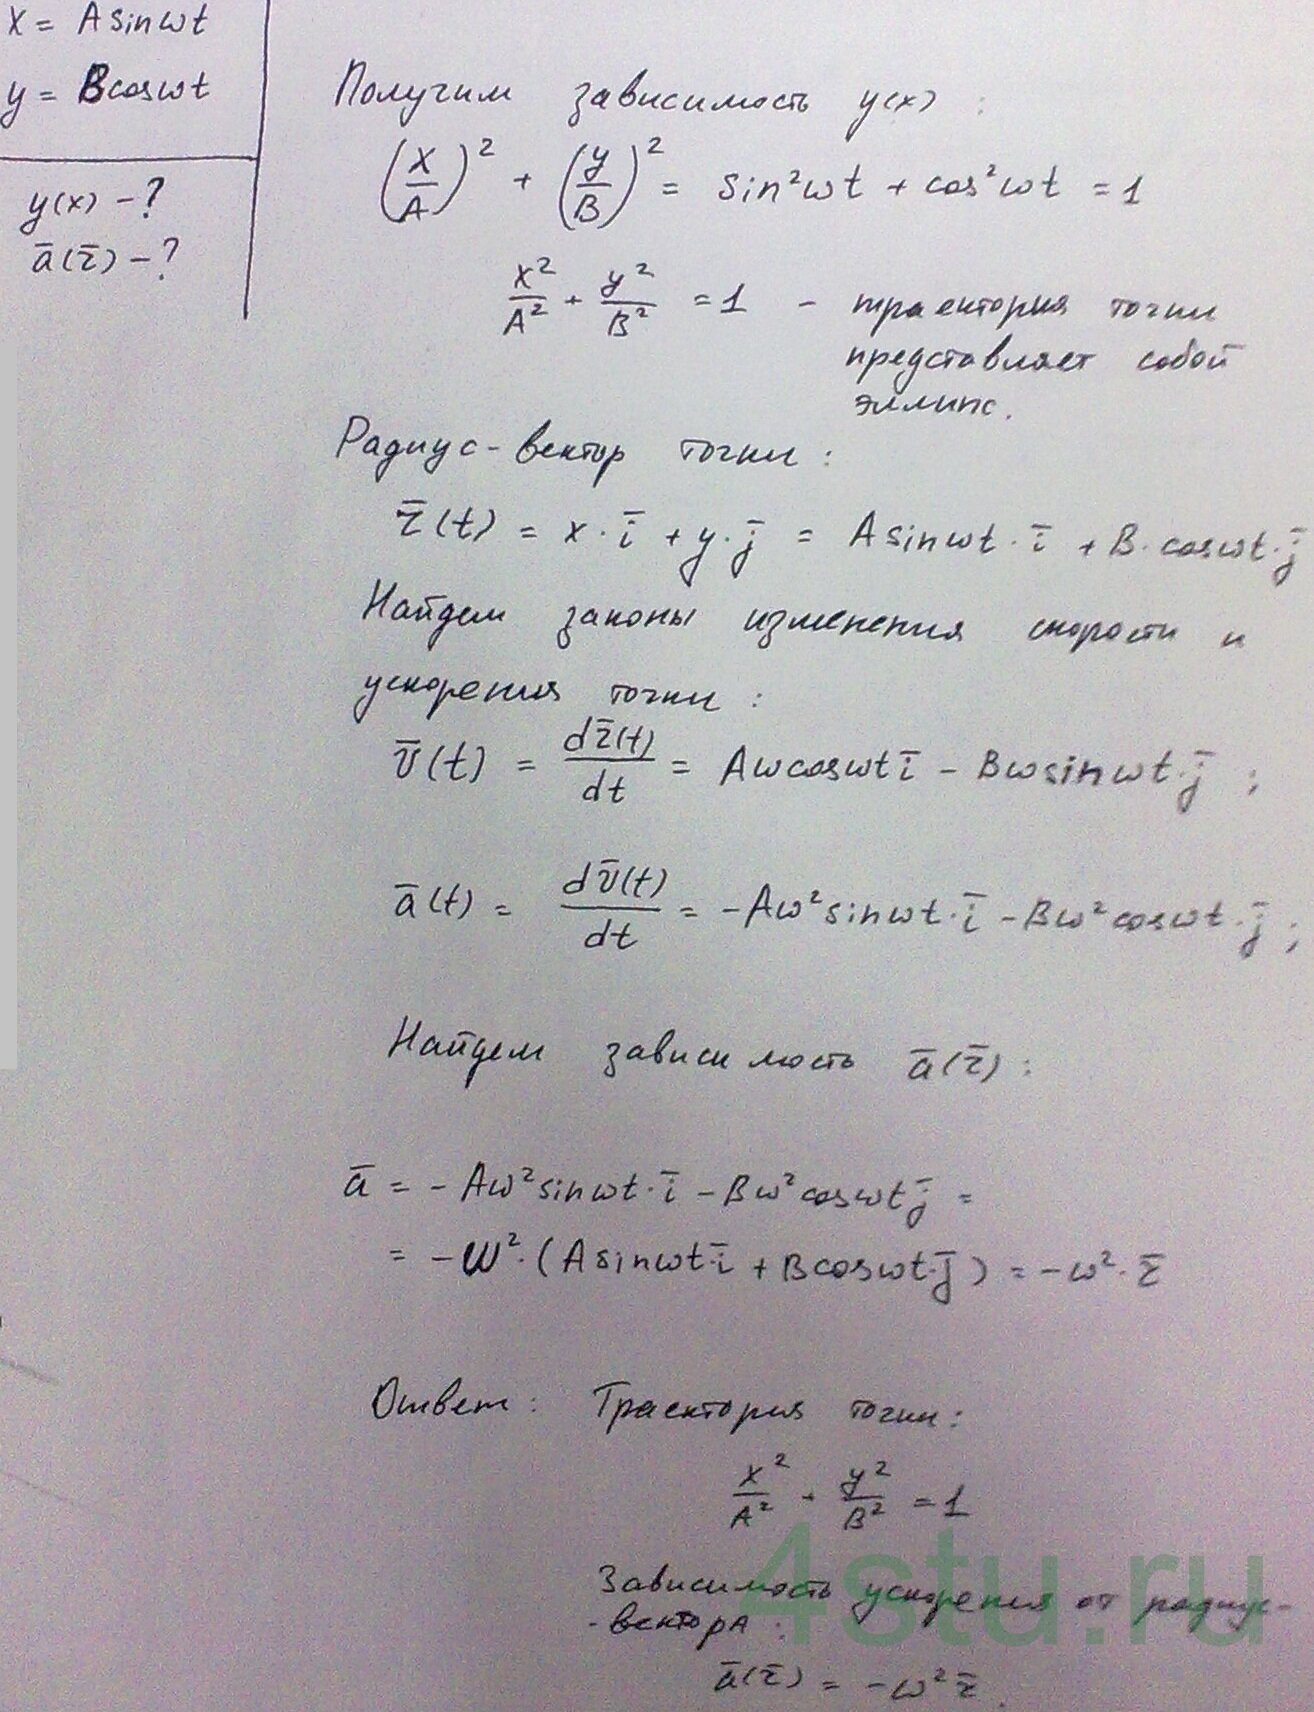 x = A sin ωt
y = B cos ωt
y(x) - ?
a̅(r̅) - ?
Получим зависимость y(x) :
(x/A)² + (y/B)² = sin²ωt + cos²ωt = 1
x²/A² + y²/B² = 1 - траектория точки
представляет собой
эллипс.
Радиус-вектор точки :
r̅(t) = x · i̅ + y · j̅ = A sin ωt · i̅ + B · cos ωt · j̅
Найдем законы изменения скорости и
ускорения точки :
v̅(t) = dr̅(t)/dt = Aω cos ωt i̅ - Bω sin ωt · j̅ ;
a̅(t) = dv̅(t)/dt = -Aω² sin ωt · i̅ - Bω² cos ωt · j̅ ;
Найдем зависимость a̅(r̅) :
a̅ = - Aω² sin ωt · i̅ - Bω² cos ωt j̅ =
= -ω² · (A sin ωt · i̅ + B cos ωt · j̅) = -ω² · r̅
Ответ : Траектория точки :
x²/A² + y²/B² = 1
Зависимость ускорения от радиус-
-вектора :
a̅(r̅) = -ω² r̅.
4stu.ru